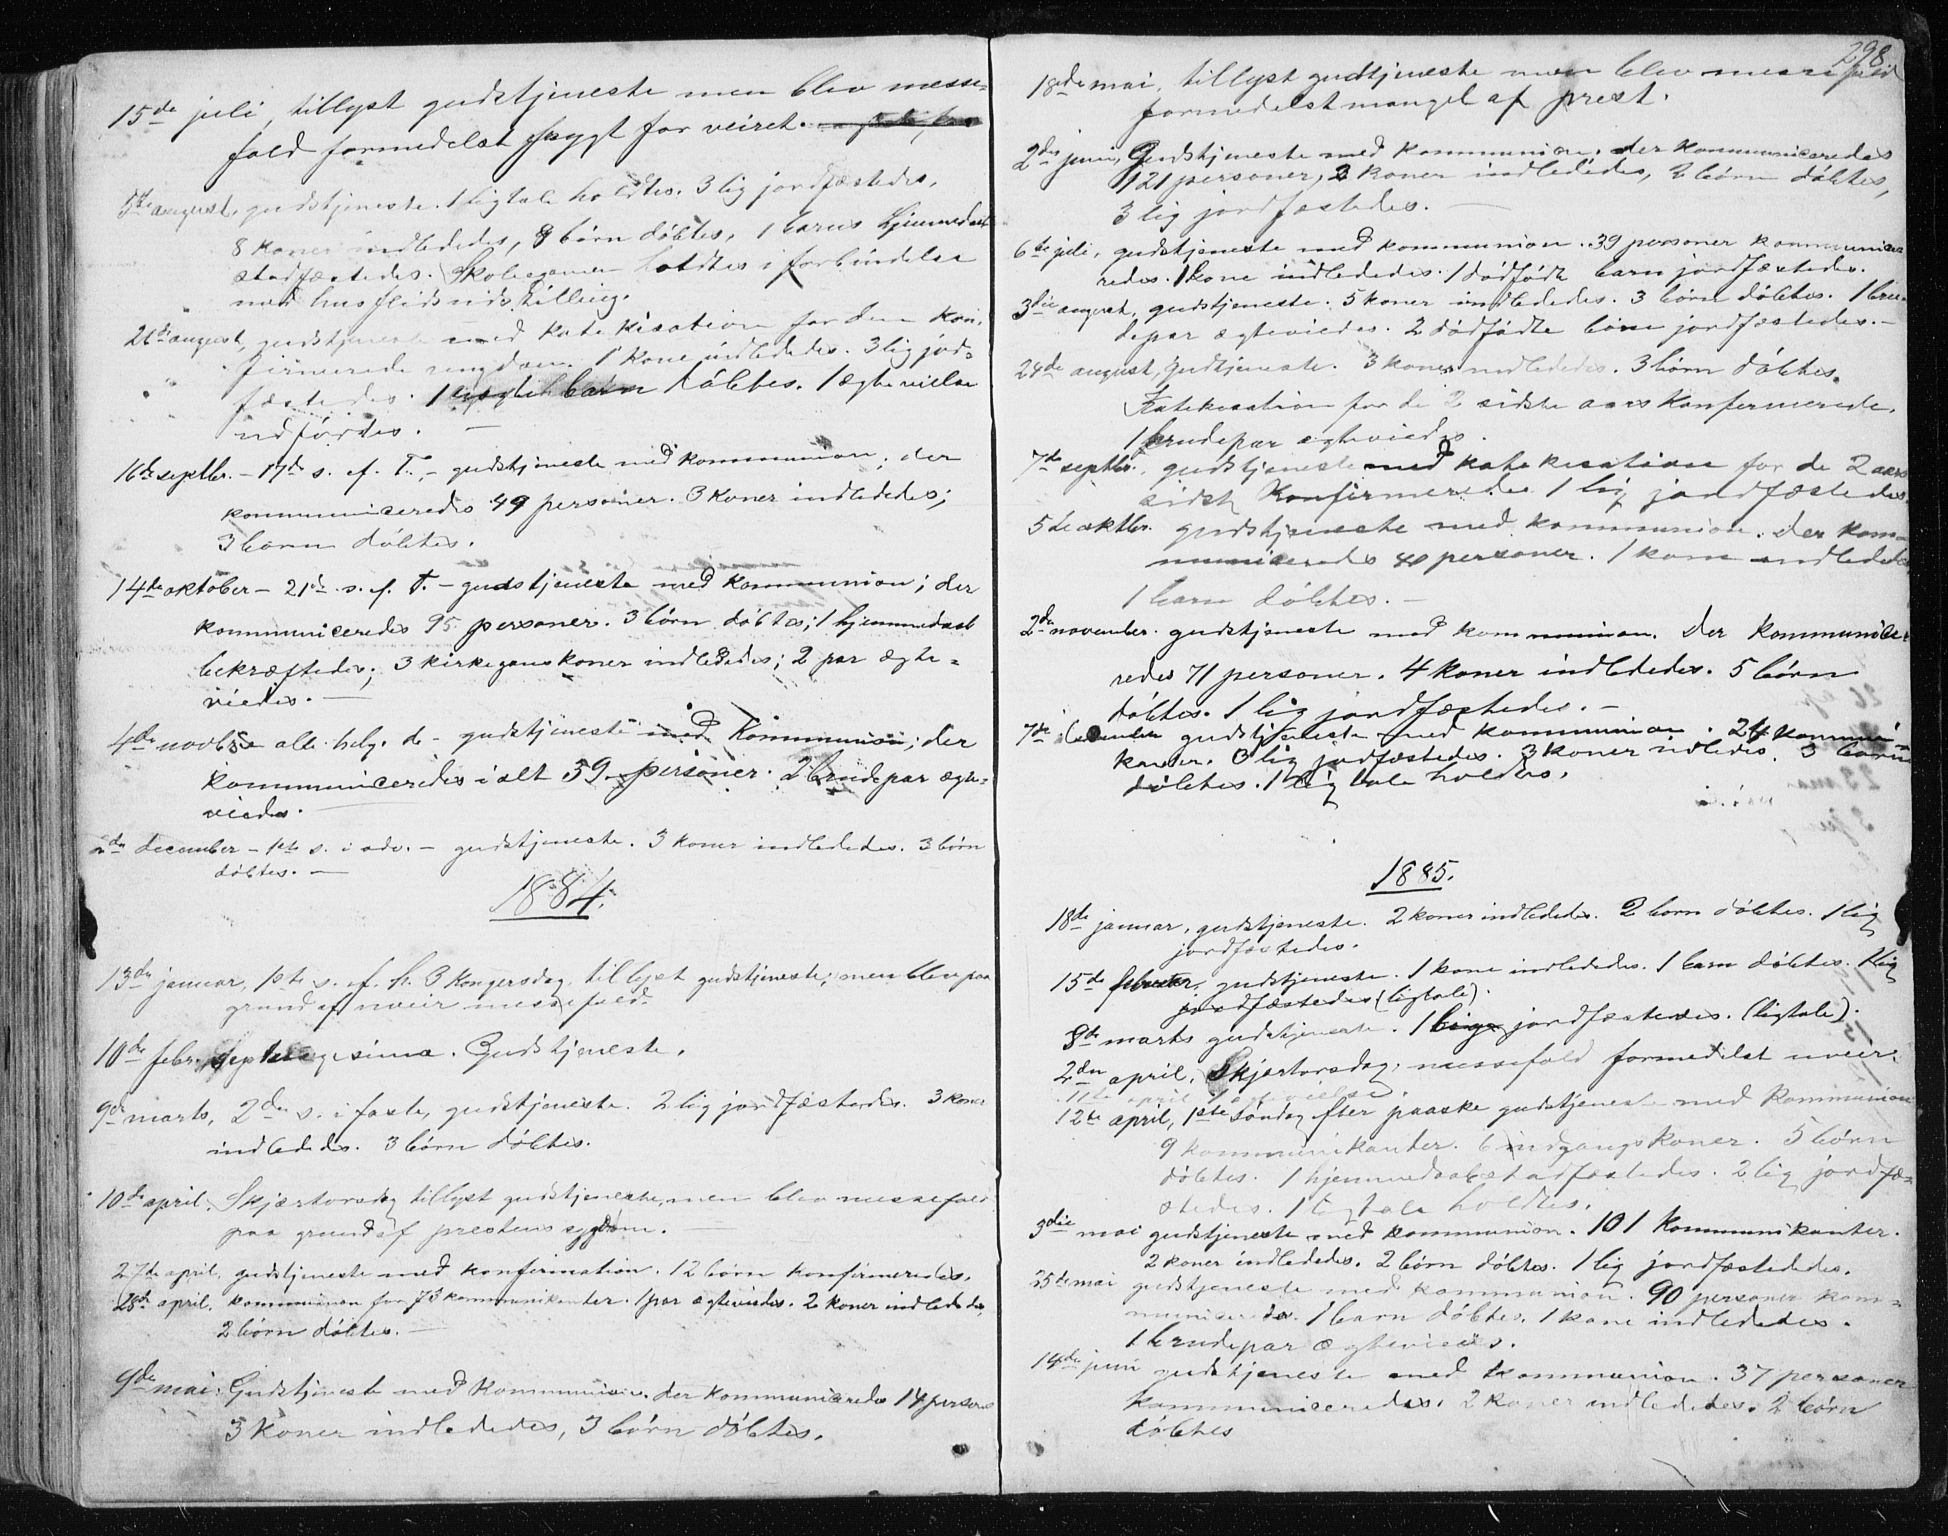 15de juli, tillyst gudstjeneste men blev messe-
fald formedelst frygt for veiret.
5te august, gudstjeneste. 1 ligtale holdtes. 3 lig jordfæstedes.
8 koner indlededes, 8 børn døbtes, 1 barns hjemmedaab
stadfæstedes. Skoleexamen holdtes i forbindelse
med husflidsudstilling.
26de august, gudstjeneste med katekisation for den kon-
firmerede ungdom. 1 kone indlededes. 3 lig jord-
fæstedes. 1 barn døbtes. 1 ægtevielse
udførdes. —
16de septbr. - 17de s. ef. T. - gudstjeneste med kommunion; der
kommuniceredes 49 personer. 3 koner indlededes;
3 børn døbtes.
14de oktober - 21de s. ef. T. - gudstjeneste med kommunion; der
kommuniceredes 95 personer. 3 børn døbtes; 1 hjemmedaab
bekræftedes; 3 kirkegangskoner indlededes; 2 par ægte-
viedes. —
4de novbr alle helg. d. - gudstjeneste med kommunion; der
kommuniceredes i alt 59 personer. 2 brudepar ægte-
viedes.
2den december - 1ste s. i adv. - gudstjeneste. 3 koner indlededes. 3 børn
døbtes. —
1884.
13de januar, 1ste s. ef. h. 3 kongersdag, tillyst gudstjeneste, men blev paa
grund af uveir messefald.
10de febr. septuagesima. Gudstjeneste.
9de marts, 2den s. i faste, gudstjeneste. 2 lig jordfæstedes. 3 koner
indlededes. 3 børn døbtes.
10de april. Skjærtorsdag tillyst gudstjeneste, men blev messefald
paa grund af prestens sygdom. —
27de april, gudstjeneste med konfirmation. 12 børn konfirmeredes.
28de april, kommunion for 73 kommunikanter. 1 par ægteviedes. 2 koner indlededes,
2 børn døbtes. —
9de mai. Gudstjeneste med kommunion. der kommuniceredes 14 personer
3 koner indlededes, 3 børn døbtes.
298
18de mai, tillyst gudtjeneste men blev messefald
formedelst mangel af prest.
2den juni, Gudstjeneste med kommunion. der kommuniceredes
121 personer, 2 koner indlededes, 2 børn døbtes,
3 lig jordfæstedes. —
6te juli, gudstjeneste med kommunion. 39 personer kommunice-
redes. 1 kone indlededes. 1 dødfødt barn jordfæstedes.
3die august, gudstjeneste. 5 koner indlededes. 3 børn døbtes. 1 bru-
depar ægteviedes. 2 dødfødte børn jordfæstedes. —
24de august, gudtjeneste. 3 koner indlededes. 3 børn døbtes.
Katekisation for de 2 sidste aars konfirmerede.
1 brudepar ægteviedes.
7de septbr. gudstjeneste med katekisation for de 2 aars
sidst konfirmerede. 1 lig jordfæstedes.
5te oktbr. gudstjeneste med kommunion. der kom-
municeredes 40 personer. 1 kone indlededes
1 barn døbtes. —
2den november. gudstjeneste med kommunion. der kommunice-
redes 71 personer. 4 koner indlededes. 5 børn
døbtes. 1 lig jordfæstedes. —
7de december gudstjeneste med kommunion. 24 kommuni-
kanter. 3 lig jordfæstedes. 3 koner indledes. 3 børn
døbtes. 1 lig tale holdtes.
1885.
18de januar, gudstjeneste. 2 koner indlededes. 2 børn døbtes. 1 lig
jordfæstedes.
15de februar, gudstjeneste. 1 kone indlededes. 1 barn døbtes. 1 lig
jordfæstedes (ligtale).
8de marts gudstjeneste. 1 lig jordfæstedes. (ligtale).
2den april, Skjærtorsdag, messefald formedelst uveir.
11te april 1 vielse.
12te april, 1ste søndag efter paaske gudstjeneste med kommunion
9 kommunikanter. 6 indgangskoner. 5 børn
døbtes. 1 hjemmedaab stadfæstedes. 2 lig jordfæ-
stedes. 1 ligtale holdtes.
3die mai gudstjeneste med kommunion. 101 kommunikanter.
2 koner indlededes. 2 børn døbtes. 1 lig jordfæstedes.
25de mai gudstjeneste med kommunion. 90 personer kom-
municeredes. 1 barn døbtes. 1 kone indlededes.
1 brudepar ægteviedes.
14de juni gudstjeneste med kommunion. 37 personer
kommuniceredes. 2 koner indlededes. 2 børn
døbtes